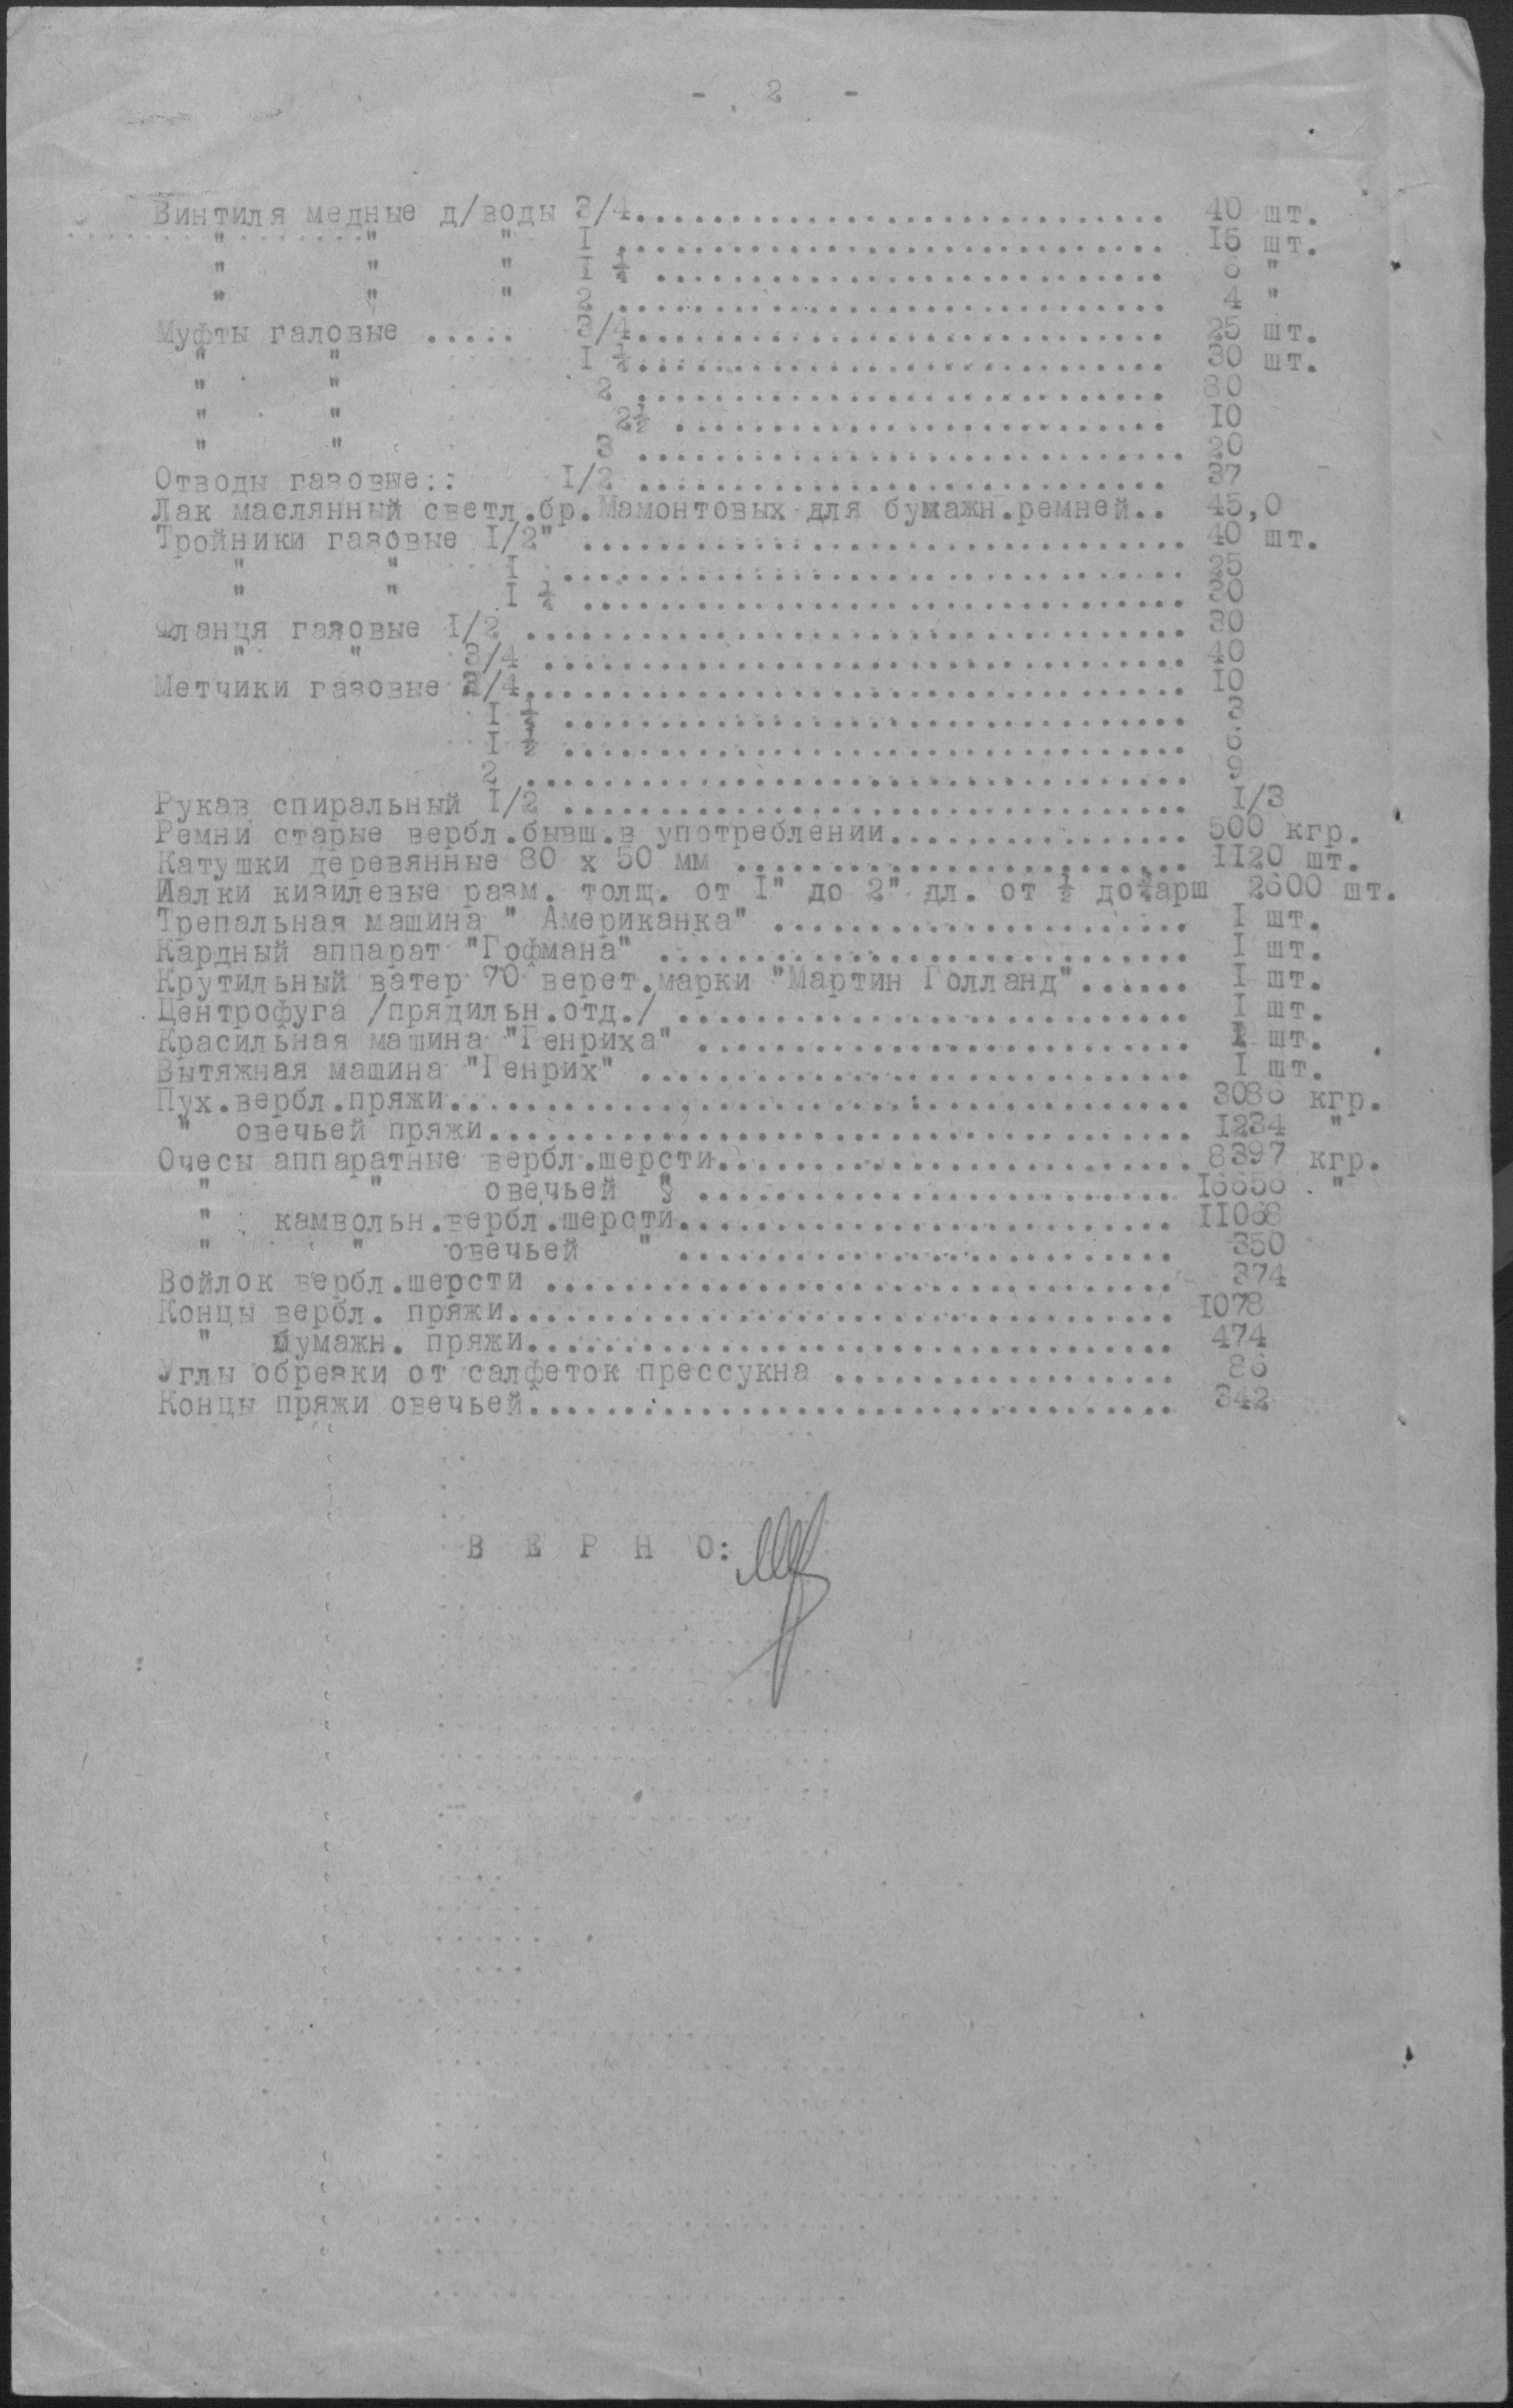 - 2 -
Винтиля медные д/воды 3/4............................ 40 шт.
" " " I ............................. 15 шт.
" " " I ¼ ........................... 6 "
" " " 2 ............................. 4 "
Муфты галовые ..... 3/4............................ 25 шт.
" " I ½............................ 30 шт.
" " 2 ............................ 80
" " 2½ .......................... 10
" " 3 ............................. 20
Отводы газовые:: I/2 ............................ 37
Лак маслянный светл.бр.Мамонтовых для бумажн.ремней.. 45,0
Тройники газовые I/2" ................................ 40 шт.
" " I ................................. 25
" " I ¼ ................................ 30
Фланця газовые I/2 ................................... 30
" " 3/4 .................................. 40
Метчики газовые 3/4................................... 10
I ¼ ................................. 3
I ½ ................................. 6
2 ................................... 9
Рукав спиральный I/2 ................................. I/3
Ремни старые вербл.бывш.в употреблении................ 500 кгр.
Катушки деревянные 80 х 50 мм ........................ II20 шт.
Иалки кизилевые разм. толщ. от I" до 2" дл. от ½ до¾арш 2600 шт.
Трепальная машина " Американка" ...................... I шт.
Кардный аппарат "Гофмана" ............................ I шт.
Крутильный ватер 70 верет.марки "Мартин Голланд"...... I шт.
Центрофуга /прядильн.отд./ ........................... I шт.
Красильная машина "Генриха" .......................... шт.
Вытяжная машина "Генрих" ............................. I шт.
Пух.вербл.пряжи....................................... 3086 кгр.
" овечьей пряжи..................................... I234 "
Очесы аппаратные вербл.шерсти......................... 8397 кгр.
" " овечьей § ......................... I6656 "
" камвольн.вербл.шерсти.......................... II068
" " овечьей " .......................... 350
Войлок вербл.шерсти ................................. 374
Концы вербл. пряжи................................... I078
" бумажн. пряжи.................................. 474
Углы обрезки от салфеток прессукна .................. 86
Концы пряжи овечьей.................................. 342
В Е Р Н О: